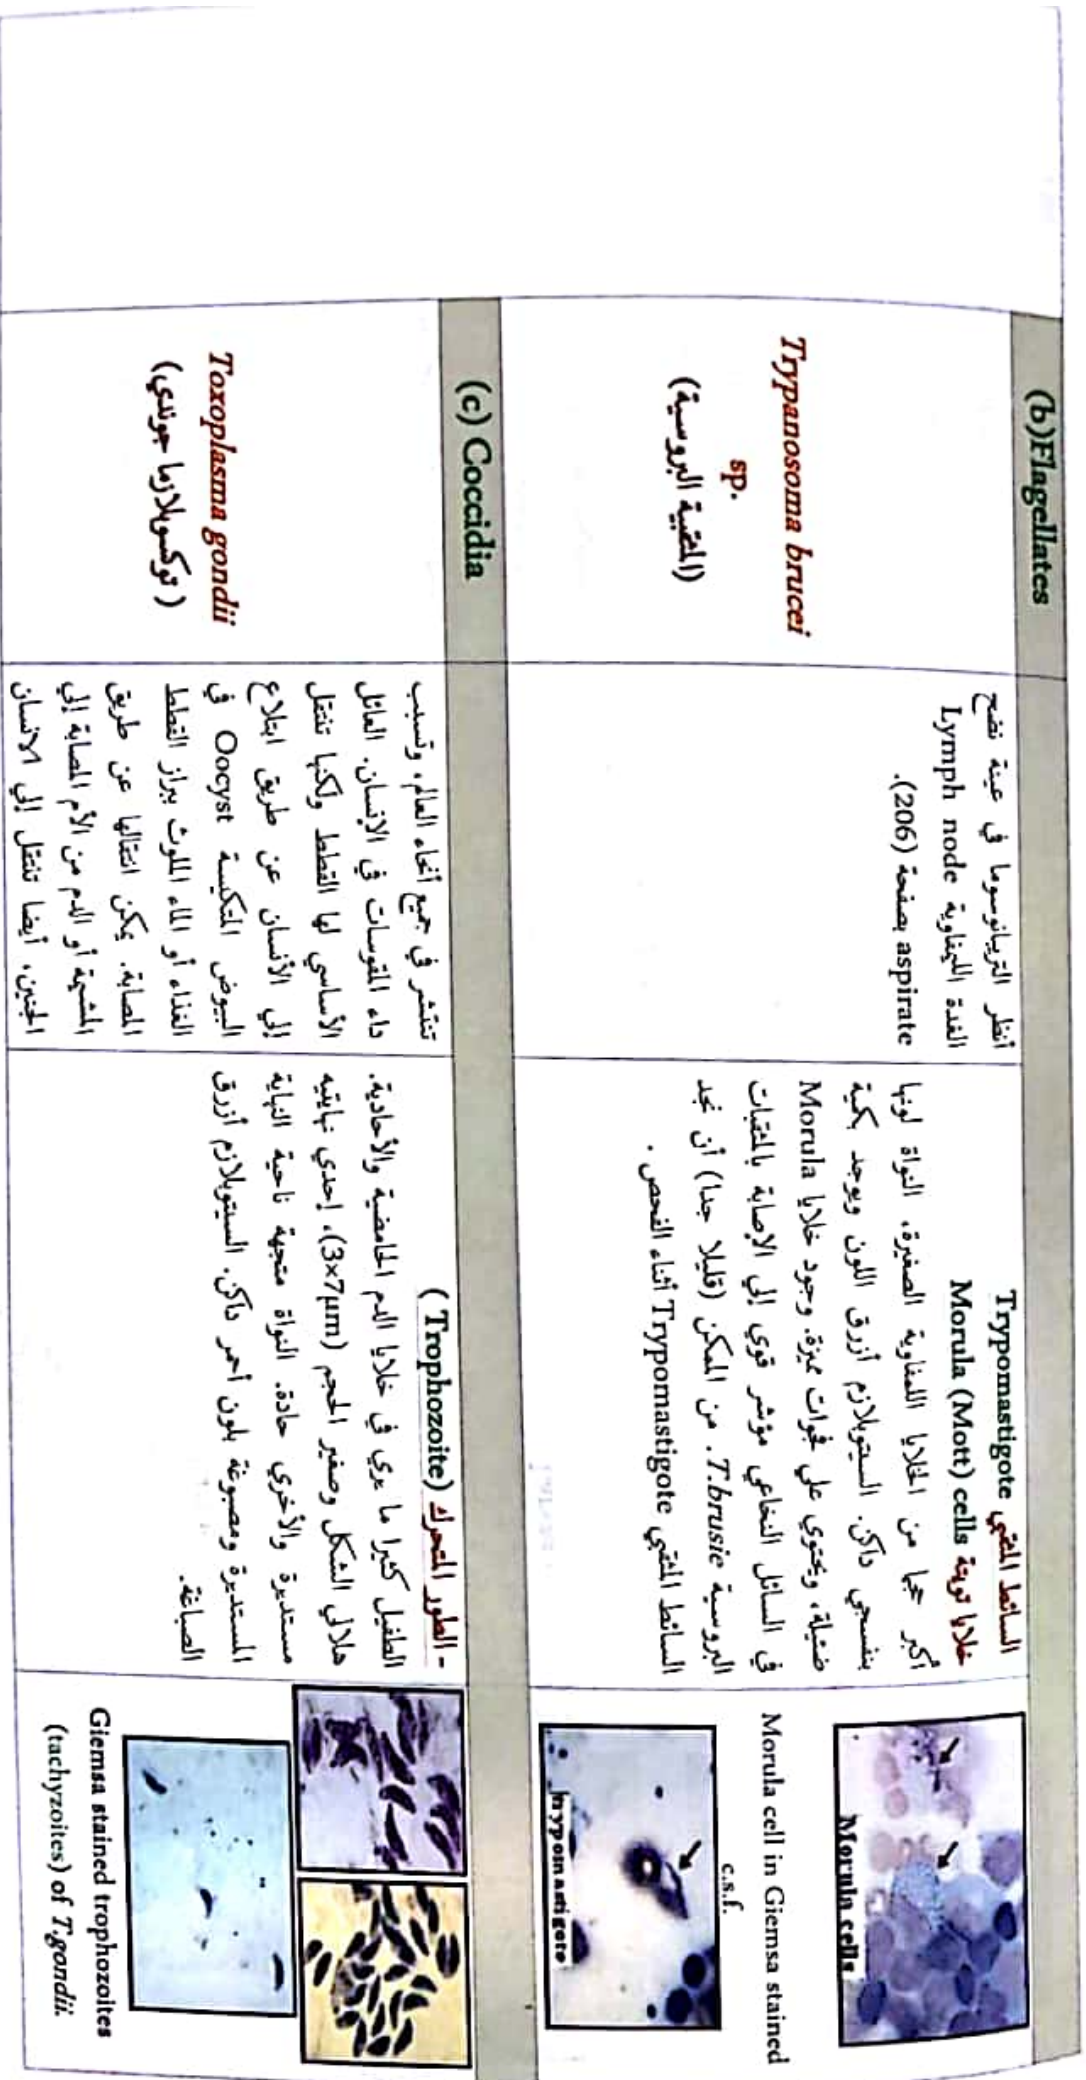 (b)Flagellates
Trypanosoma brucei
sp.
(المثقبية البروسية)
أنظر التريبانوسوما في عينة نضح
الغدة الليمفاوية Lymph node
aspirate بصفحة (206).
السائط المثقبي Trypomastigote
خلايا توتية Morula (Mott) cells
أكبر حجما من الخلايا اللمفاوية الصغيرة، النواة لونها
بنفسجي داكن. السيتوبلازم أزرق اللون ويوجد بكمية
ضئيلة، ويحتوي علي فجوات مميزة. وجود خلايا Morula
في السائل النخاعي مؤشر قوي إلى الإصابة بالمثقبات
البروسية T.brusie. من الممكن (قليلا جدا) أن نجد
السائط المثقبي Trypomastigote أثناء الفحص .
Morula cells
Morula cell in Giemsa stained
c.s.f.
trypomastigote
(c) Coccidia
Toxoplasma gondii
( توكسوبلازما جوندي)
تنتشر في جميع أنحاء العالم، وتسبب
داء المقوسات في الإنسان. العائل
الأساسي لها القطط ولكنها تنتقل
إلي الأنسان عن طريق ابتلاع
البيوض المتكيسة Oocyst في
الغذاء أو الماء الملوث ببراز القطط
المصابة. يمكن انتقالها عن طريق
المشيمة أو الدم من الأم المصابة إلي
الجنين، أيضا تنتقل إلي الانسان
- الطور المتحرك (Trophozoite )
الطفيل كثيرا ما يري في خلايا الدم الحامضية والأحادية.
هلالي الشكل وصغير الحجم (3x7µm)، إحدي نهايتيه
مستديرة والأخري حادة. النواة متجهة ناحية النهاية
المستديرة ومصبوغة بلون أحمر داكن. السيتوبلازم أزرق
الصباغة.
Giemsa stained trophozoites
(tachyzoites) of T.gondii.